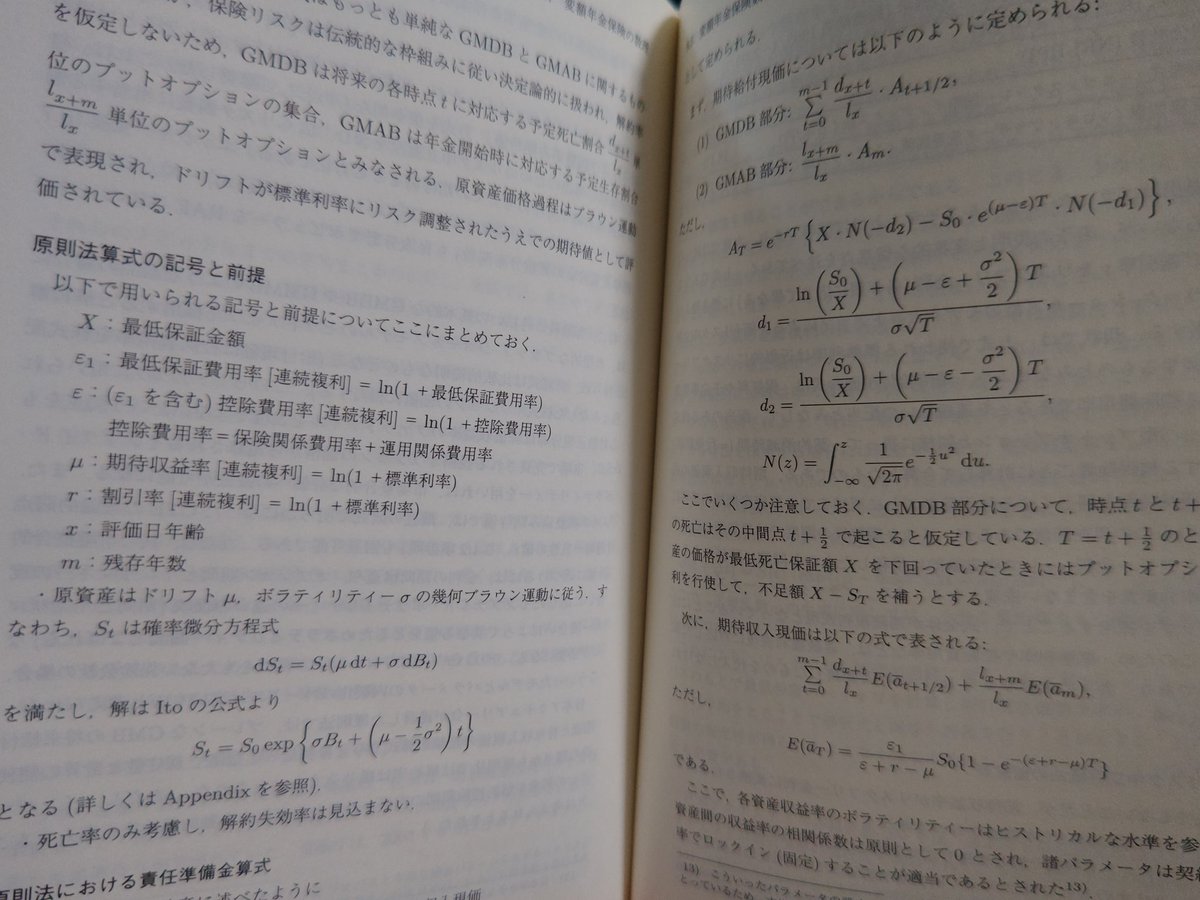 変額年金保険の数理
はもっとも単純な GMDB と GMAB に関するもの
保険リスクは伝統的な枠組みに従い決定論的に扱われ, 解約率
を仮定しないため, GMDB は将来の各時点 t に対応する予定死亡割合 d_{x+t}/l_x 単
位のプットオプションの集合, GMAB は年金開始時に対応する予定生存割合
l_{x+m}/l_x 単位のプットオプションとみなされる. 原資産価格過程はブラウン運動
で表現され, ドリフトが標準利率にリスク調整されたうえでの期待値として評
価されている.
原則法算式の記号と前提
以下で用いられる記号と前提についてここにまとめておく.
X : 最低保証金額
ε₁ : 最低保証費用率 [連続複利] = ln(1 + 最低保証費用率)
ε : (ε₁ を含む) 控除費用率 [連続複利] = ln(1 + 控除費用率)
控除費用率 = 保険関係費用率 + 運用関係費用率
μ : 期待収益率 [連続複利] = ln(1 + 標準利率)
r : 割引率 [連続複利] = ln(1 + 標準利率)
x : 評価日年齢
m : 残存年数
・原資産はドリフト μ, ボラティリティー σ の幾何ブラウン運動に従う. す
なわち, S_t は確率微分方程式
dS_t = S_t(μ dt + σ dB_t)
を満たし, 解は Ito の公式より
S_t = S_0 exp{σB_t + (μ − 1/2 σ²) t}
となる (詳しくは Appendix を参照).
・死亡率のみ考慮し, 解約失効率は見込まない.
原則法における責任準備金算式
に述べたように
変額年金保険
として定められる.
まず, 期待給付現価については以下のように定められる:
(1) GMDB 部分: Σ_{t=0}^{m−1} d_{x+t}/l_x · A_{t+1/2},
(2) GMAB 部分: l_{x+m}/l_x · A_m.
ただし,
A_T = e^{−rT} {X · N(−d_2) − S_0 · e^{(μ−ε)T} · N(−d_1)},
d_1 = (ln(S_0/X) + (μ − ε + σ²/2) T) / (σ√T),
d_2 = (ln(S_0/X) + (μ − ε − σ²/2) T) / (σ√T),
N(z) = ∫_{−∞}^{z} 1/√(2π) e^{−1/2 u²} du.
ここでいくつか注意しておく. GMDB 部分について, 時点 t と t +
の死亡はその中間点 t + 1/2 で起こると仮定している. T = t + 1/2 のと
産の価格が最低死亡保証額 X を下回っていたときにはプットオプシ
利を行使して, 不足額 X − S_T を補うとする.
次に, 期待収入現価は以下の式で表される:
Σ_{t=0}^{m−1} d_{x+t}/l_x E(ā_{t+1/2}) + l_{x+m}/l_x E(ā_m),
ただし,
E(ā_T) = ε₁/(ε + r − μ) S_0{1 − e^{−(ε+r−μ)T}}
である.
ここで, 各資産収益率のボラティリティーはヒストリカルな水準を参
資産間の収益率の相関係数は原則として 0 とされ, 諸パラメータは契約
率でロックイン (固定) することが適当であるとされた13).
13) こういったパラメータの
とっているため,